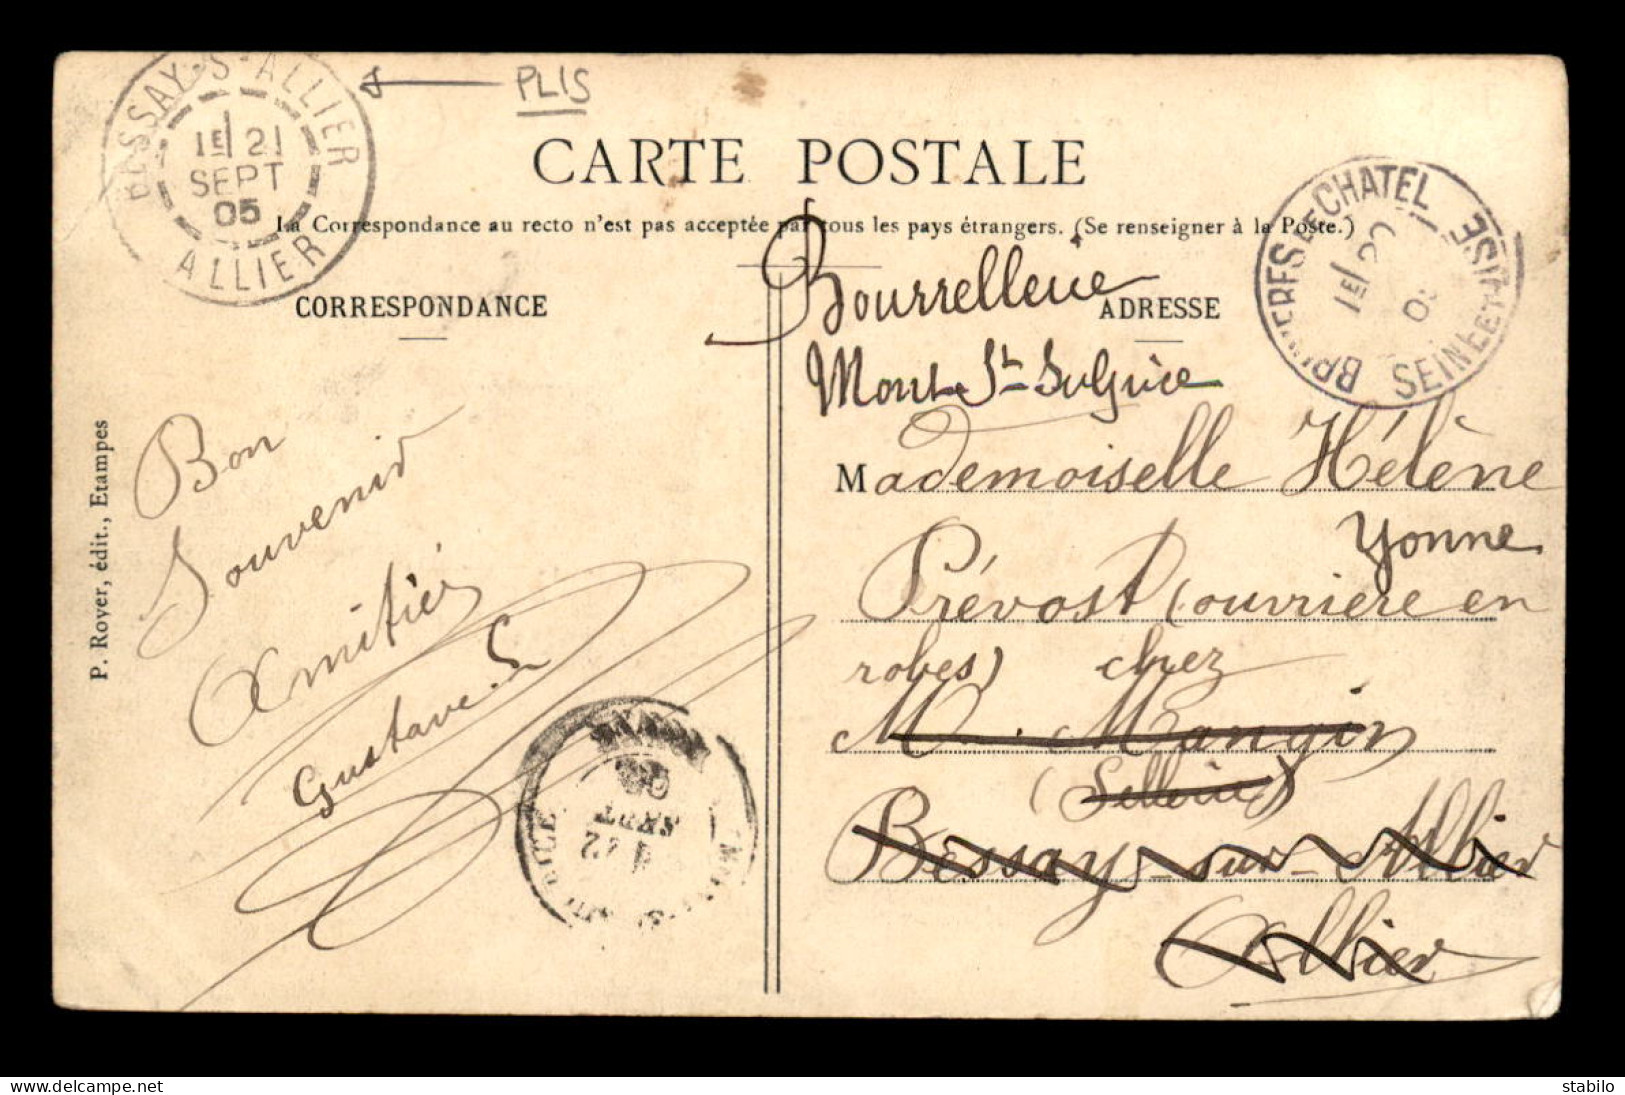 BESSAY-S-ALLIER
1E/ 21
SEPT
05
ALLIER
PLIS
CARTE POSTALE
La Correspondance au recto n'est pas acceptée par tous les pays étrangers. (Se renseigner à la Poste.)
CORRESPONDANCE
ADRESSE
BRUYERES-LE-CHATEL
1E/ 20
05
SEINE ET OISE
P. Royer, édit., Etampes
Bon
Souvenir
Amitiés
Gustave. L
YONNE
22
SEPT
05
Bourrellerie
Mont St Sulpice
Mademoiselle Hélène
Yonne
Prévost (ouvrière en
robes) chez
M. Mangin
(Sellerie)
Bessay-sur-Allier
Allier
delcampe.net
stabilo